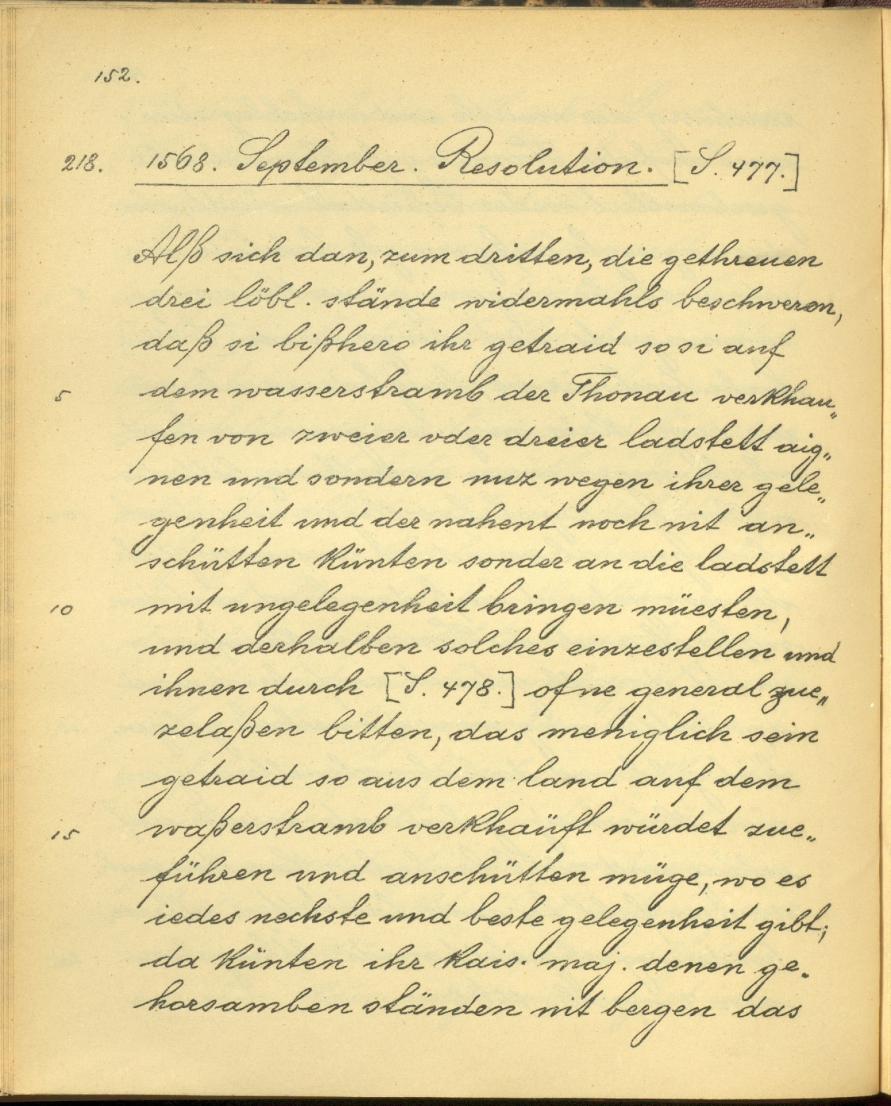 152.
218. 1568. September. Resolution. [S. 477.]
Alß sich dan, zum dritten, die gethreuen
drei löbl. stände widermahls beschweren,
daß si bißhero ihr getraid so si auf
5 dem wasserstramb der Thonau verkhau„
fen von zweier oder dreier ladstett aig„
nen und sondern nuz wegen ihrer gele„
genheit und der nahent noch nit an„
schütten künten sonder an die ladstett
10 mit ungelegenheit bringen müesten,
und derhalben solches einzestellen und
ihnen durch [S. 478.] ofne general zue„
zelaßen bitten, das meniglich sein
getraid so aus dem land auf dem
15 waßerstramb verkhaüft würdet zue„
führen und anschütten müge, wo es
iedes nechste und beste gelegenheit gibt;
da künten ihr kais. maj. denen ge„
horsamben ständen nit bergen das